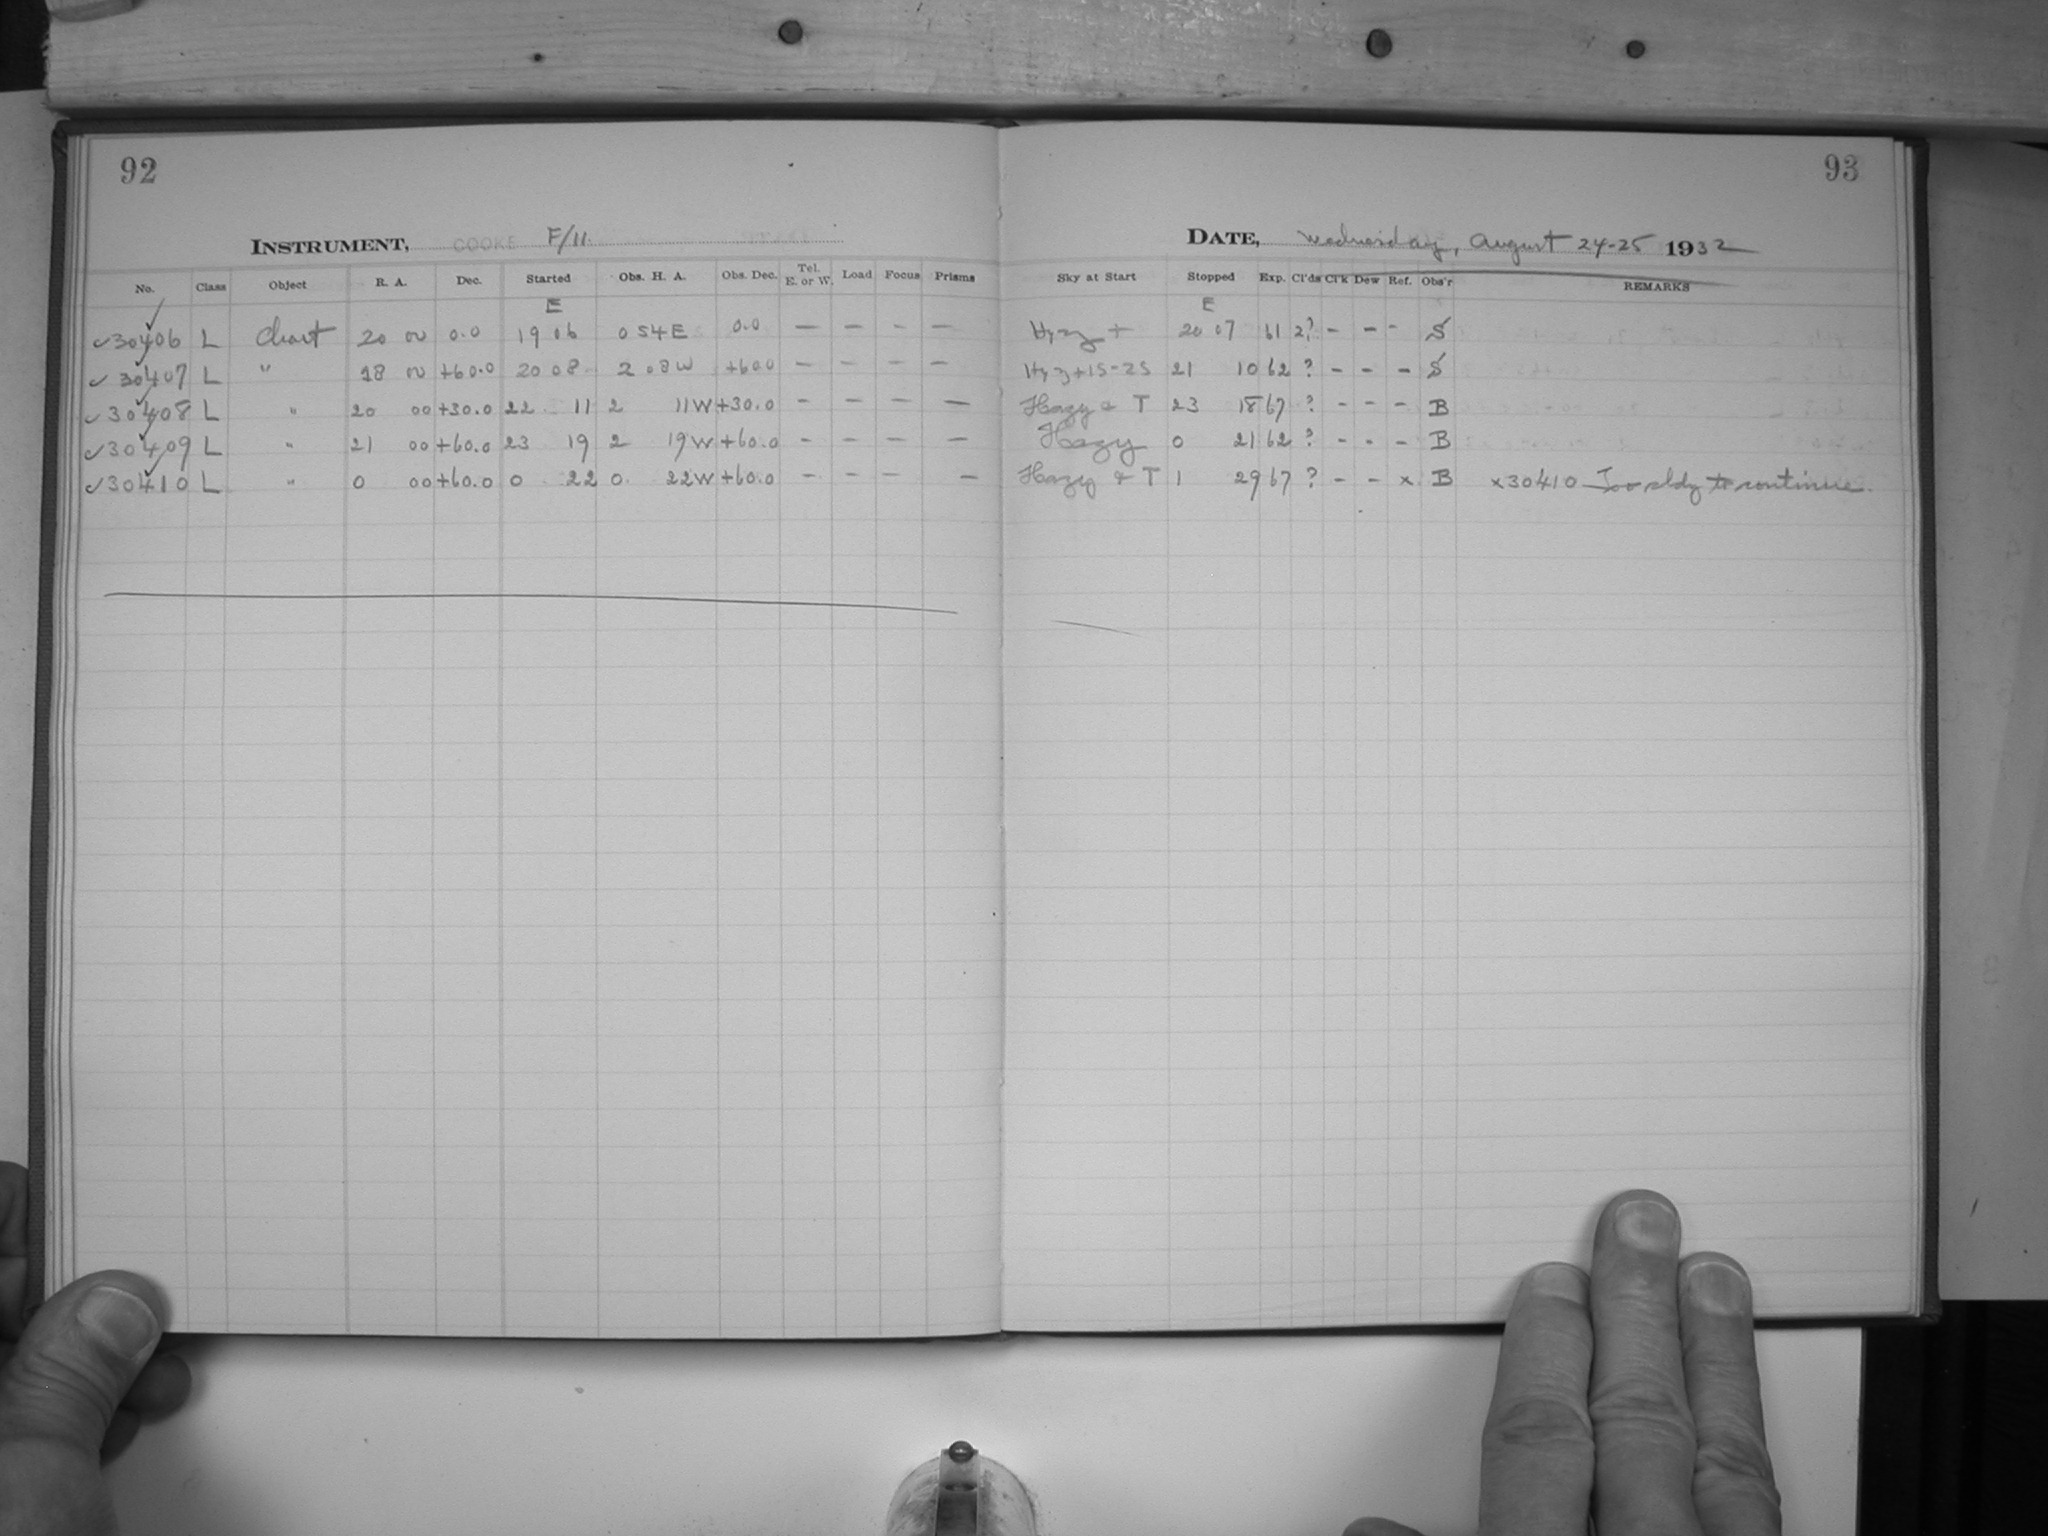 92
INSTRUMENT, COOKE F/11.
No. Class Object R. A. Dec. Started Obs. H. A. Obs. Dec. Tel. E. or W. Load Focus Prisms
E
30406 L Chart 20 00 0.0 19 06 0 54 E 0.0 — — - —
30407 L " 18 00 +60.0 20 08 2 08 W +60.0 — — — —
30408 L " 20 00 +30.0 22 11 2 11W +30.0 - — — —
30409 L " 21 00 +60.0 23 19 2 19W +60.0 - — — —
30410 L " 0 00 +60.0 0 22 0. 22W +60.0 - — — —
93
DATE, Wednesday, August 24-25 1932
Sky at Start Stopped Exp. Cl'ds Cl'k Dew Ref. Obs'r REMARKS
E
Hyzy + 20 07 61 2? - - - S
Hyz+15-25 21 10 62 ? - - - S
Hazy & T 23 18 67 ? - - - B
Hazy 0 21 62 ? - - - B
Hazy & T 1 29 67 ? - - x B x30410 Too cldy to continue.